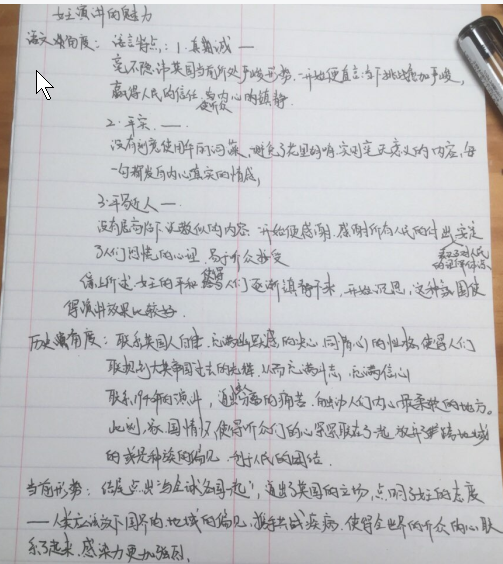 女王演讲的魅力
语文课角度：语言特点：1.真诚 —
毫不隐讳英国当前所处严峻形势，一开始便直言当下挑战愈加严峻，
赢得人民的信任，使听众内心的镇静.
2.平实. —.
没有刻意使用华丽词藻，避免了花里胡哨实则毫无意义的内容，每
一句都发自内心真实的情感，
3.平易近人 —
没有居高临下正激似的内容 开始便感谢，感谢所有人民的付出 安定
了人们的心理 易于听众接受
表现对人民
综上所述，女王的平和使得人们逐渐镇静下来，开始沉思，这种氛围使
得演讲效果比较好.
历史课角度：联系英国人自律、充满幽默感的决心，同情心的性格，使得人们
联想到大英帝国过去的光辉，从而充满斗志，充满信心
联系1940年的演讲，通过分离的痛苦，触动人们内心最柔软的地方。
此刻，家、国情怀使得听众们的心深深联在了一起 放弃了地域
的或是种族的偏见，利于人民的团结.
当前形势：结尾点出“与全球各国一起”，道出了英国的立场，点明了女王的态度
——人类应该放下国界的、地域的偏见，携手共战疾病，使得全世界的听众的心联
系了起来，感染力更加强烈.